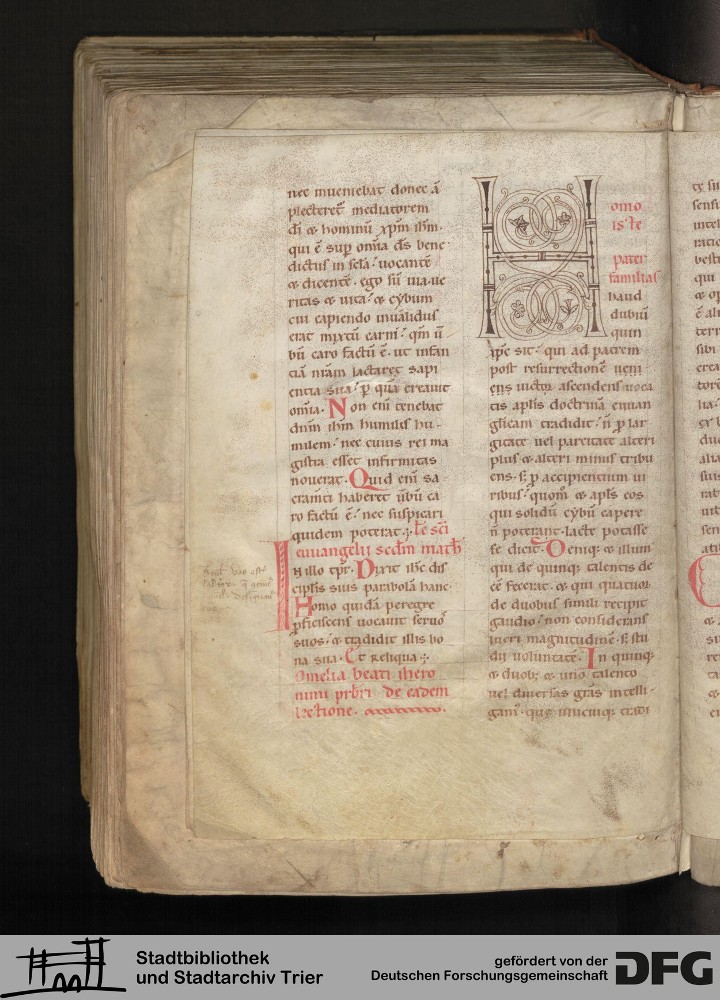 nec inueniebat donec ā
plecteret᷑ mediatorem
di̅ & hominū xp̅m ih̅m·
qui ē sup om̅ia d̅s bene
dictus in sc̅la· uocantē
& dicentē· ego su̅ uia·ue
ritas & uita· & cybum
cui capiendo inualidus
erat mixtū carni· qm̅ u̅
bū caro factū ē· ut infan
tiā n̅ram lactaret sapi
entia sua· p quā creauit
om̅ia· Non eni̅ tenebat
dn̅m ih̅m humilis hu-
milem· nec cuius rei ma
gistra esset infirmitas
nouerat· Quid eni̅ sa
cram̅ti haberet u̅bū ca
ro factū ē· nec suspicari
quidem poterat· Le sc̅i
euuangelii sedm̅ math̅
In illo tp̅r· Dixit ih̅c dis
cipl̅is suis parabolā hanc·
Homo quidā peregre
pficiscens uocauit seruos
suos· & tradidit illis bo
na sua· Et reliqua·
Omelia beati ihero
nimi prb̅ri de eadem
lectione·
Homo
iste
pater
familias
haud
dubiū
quin
xp̅c sit· qui ad patrem
post resurrectionē ueni
ens uictor ascendens uoca
tis apl̅is doctrinā euuan
glicam tradidit· n̅ p lar
gitate uel parcitate alteri
plus & alteri minus tribu
ens· s; p accipientium ui
ribus· quom̊ & apl̅s eos
qui solidū cybū capere
n̅ poterant· lacte potasse
se dicit· Deniq; & illum
qui de quinq; talentis de
cē fecerat· & qui quatuor
de duobus simili recipit
gaudio· non considerans
lucri magnitudinē· s; stu
dii uoluntatē· In quinq;
& duob; & uno talento
uel diuersas gr̅as intelli-
gam᷒· que unicuiq; tradi
Stadtbibliothek
und Stadtarchiv Trier
gefördert von der
Deutschen Forschungsgemeinschaft
DFG